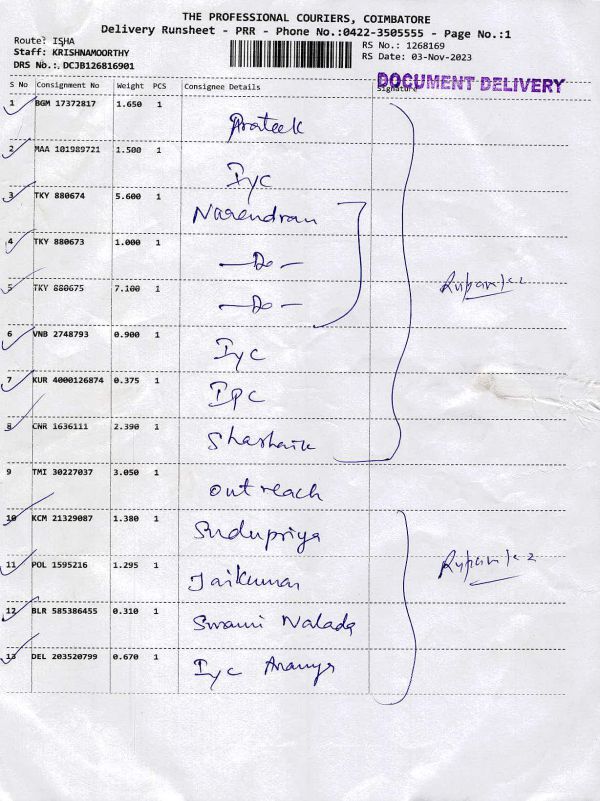 THE PROFESSIONAL COURIERS, COIMBATORE
Delivery Runsheet - PRR - Phone No.:0422-3505555 - Page No.:1
Route: ISHA
Staff: KRISHNAMOORTHY
DRS No.: DCJB126816901
RS No.: 1268169
RS Date: 03-Nov-2023
DOCUMENT DELIVERY
S No Consignment No Weight PCS Consignee Details Signature
1 BGM 17372817 1.650 1 Prateek
2 MAA 101989721 1.500 1 Iyc
3 TKY 880674 5.600 1 Narendran
4 TKY 880673 1.000 1 —Do—
5 TKY 880675 7.100 1 —Do—
6 VNB 2748793 0.900 1 Iyc
7 KUR 4000126874 0.375 1 IPC
8 CNR 1636111 2.390 1 Shashank
9 TMI 30227037 3.050 1 outreach
10 KCM 21329087 1.380 1
11 POL 1595216 1.295 1 Jaikumar
12 BLR 585386455 0.310 1 Swami Nalada
13 DEL 203520799 0.670 1 Iyc